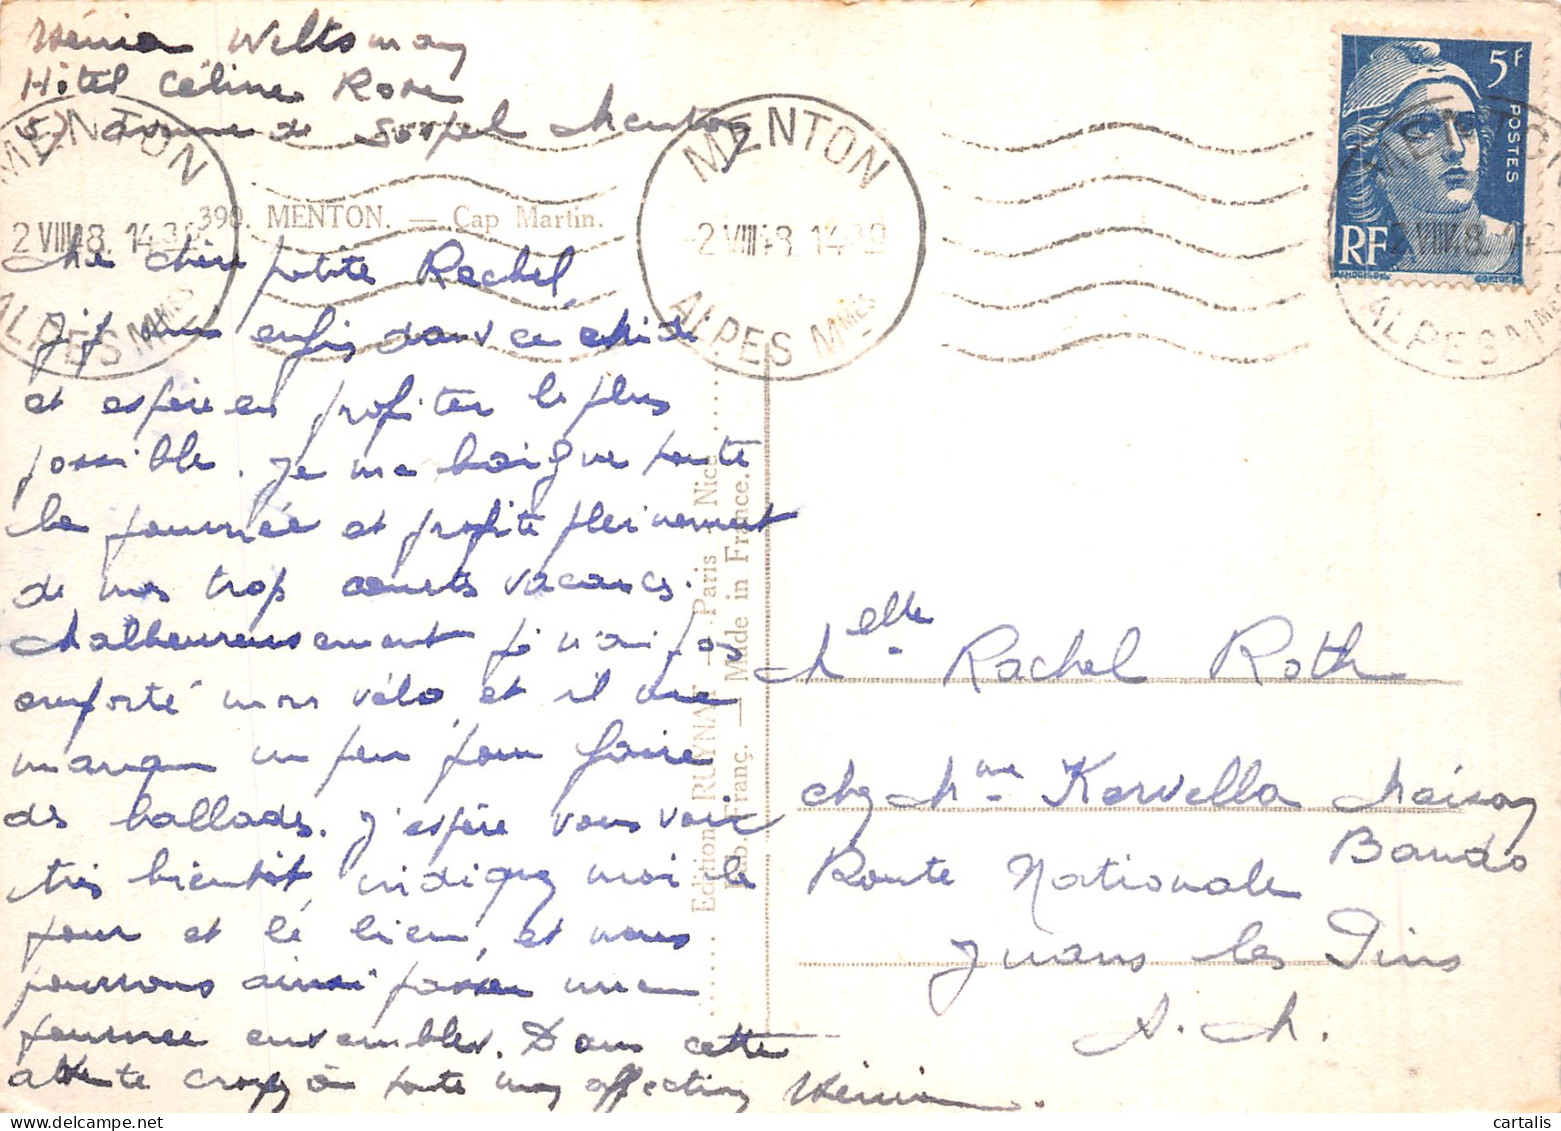 Hénia Wiltsman
Hôtel Céline Rose
57 avenue de Sospel Menton
390. MENTON. — Cap Martin.
Ma chère petite Rachel,
Je suis enfin dans ce
et espère en profiter le plus
possible. Je me baigne toute
la journée et profite pleinement
de mes trop courts vacances.
Malheureusement je n'ai pas
emporté mon vélo et il me
manque un peu pour faire
des ballades. J'espère vous voir
très bientôt indiquez moi le
jour et le lieu, et nous
pourrons ainsi passer une
journée ensembles. Dans cette
attente croyez à toute mon affection Hénia.
MENTON
2 VIII 48. 14 30
ALPES MMES
MENTON
-2 VIII 48 14 30
ALPES MMES
MENTON
2 VIII 48
ALPES MMES
5F
POSTES
RF
GANDON
CORTOT
Edition RUYNAT — Paris - Nice
Fab. Franç. — Made in France.
Melle Rachel Roth
chez Mme Kervella Maison
Bando
Route Nationale
Juans les Pins
A. M.
cartalis